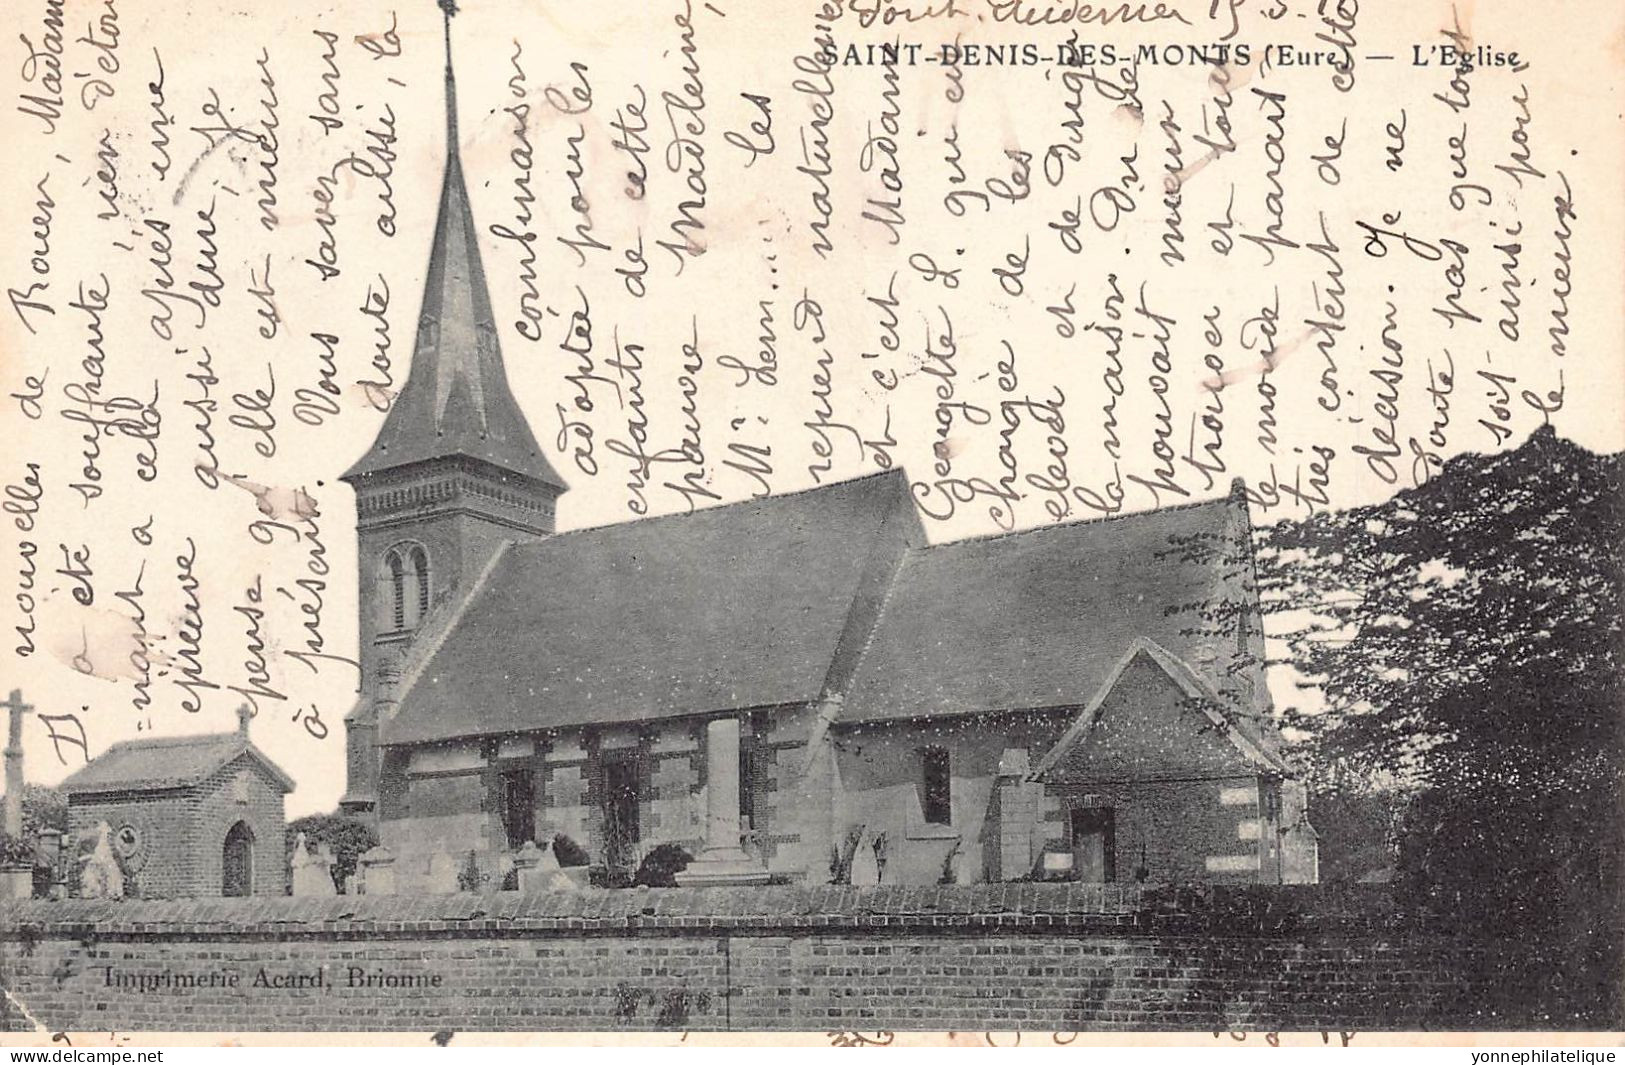 Pont-Audemer 15.3.
SAINT-DENIS-DES-MONTS (Eure) — L'Eglise
nouvelles de Rouen, Madam
D. a été souffrante, rien d'éton
=nant a cela après une
épreuve aussi dure, je
pense qu'elle est mieux
à présent. Vous savez sans
doute aussi, la
combinaison
adoptée pour les
enfants de cette
pauvre Madeleine,
Mr Lem... les
reprend naturellement
et c'est Madame
Georgette L. qui en
chargée de les
elever et de diriger
la maison. On ne
pouvait mieux
trouver et tout
le monde parait
très content de cette
décision. Je ne
doute pas que tout
soit ainsi pour
le mieux.
Imprimerie Acard, Brionne
yonnephilatelique